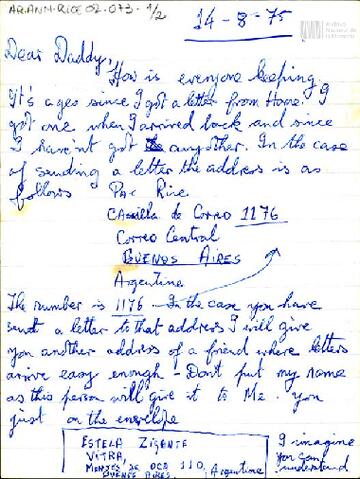 AR.ANM-RICE 02-073-1/2
14-8-75
Archivo
Nacional de
la Memoria
Dear Daddy,
How is everyone keeping.
It's ages since I got a letter from Home. I
got one when I arrived back and since
I havent got any other. In the case
of sending a letter the address is as
follows Pat Rice
Casilla de Correo 1176
Correo Central
BUENOS AIRES
Argentina
The number is 1176 - In the case you have
sent a letter to that address I will give
you another address of a friend where letters
arrive easy enough - Dont put my name
as this person will give it to Me. you
just on the envelope
ESTELA
VITRA,
MONTES DE OCA 110, Argentina
BUENOS AIRES.
I imagine
you can
understand